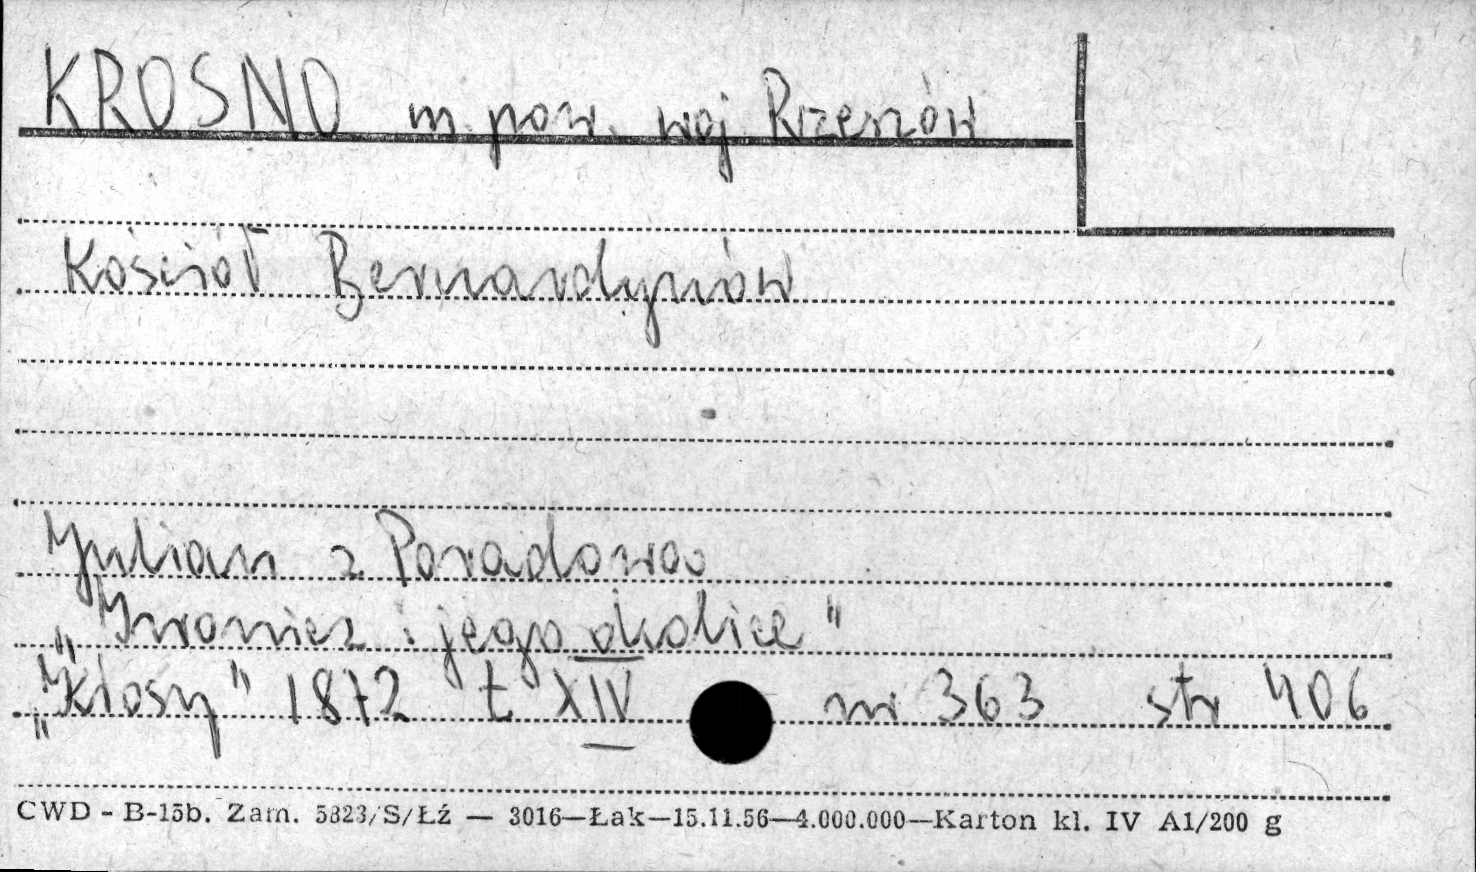 KROSNO m. pow. woj Rzeszów
Kościół Bernardynów
Julian z Poradowa
„Iwonicz i jego okolice"
„Kłosy" 1872 t XIV nr 363 str 406
CWD - B-15b. Zam. 5823/S/Łź — 3016—Łak—15.11.56—4.000.000—Karton kl. IV A1/200 g